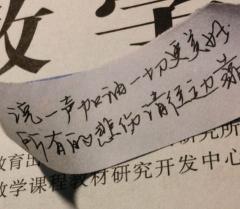 教学
说一声加油一切更美好
所有的悲伤请往边靠
研究所
教育出
教学课程教材研究开发中心